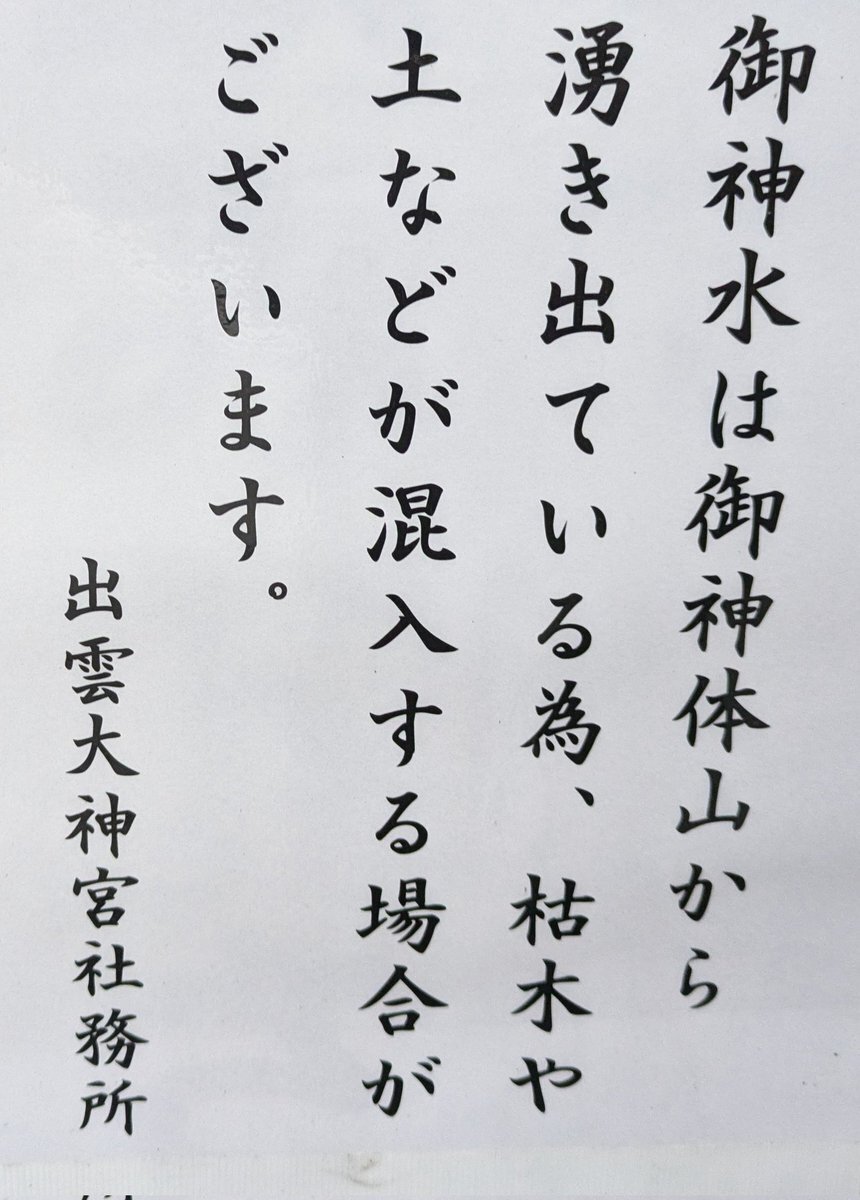 御神水は御神体山から
湧き出ている為、枯木や
土などが混入する場合が
ございます。
出雲大神宮社務所